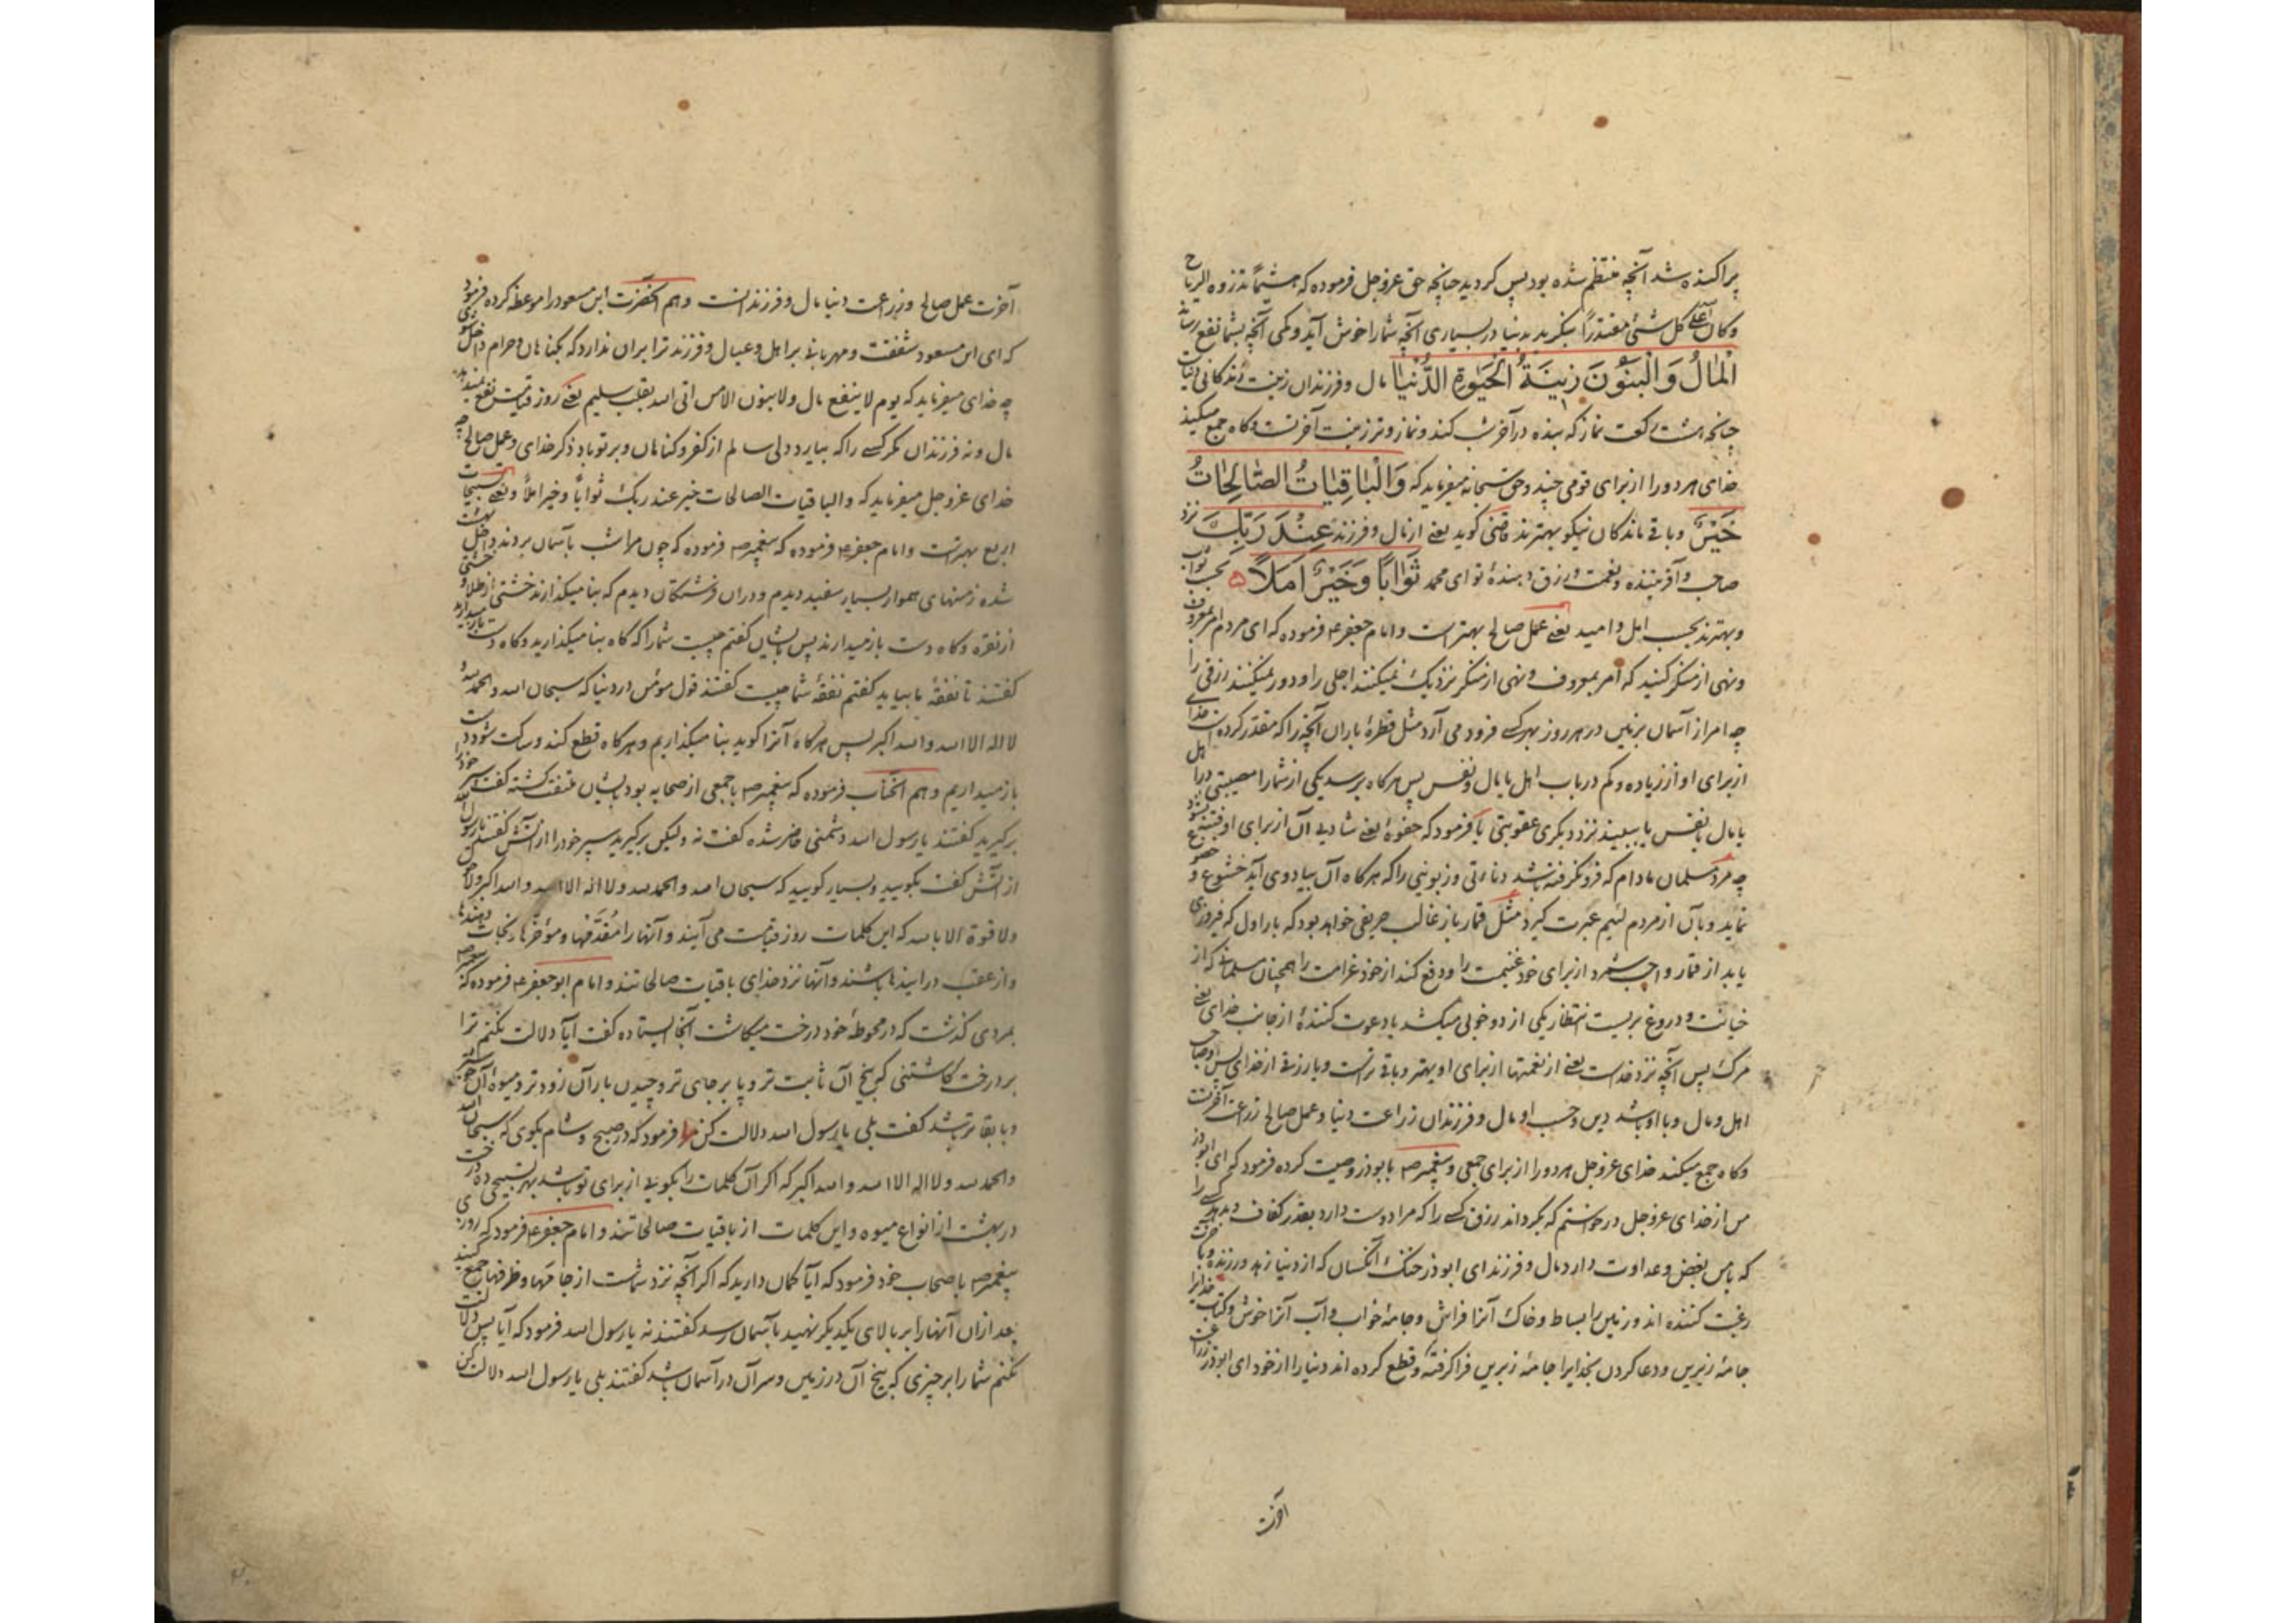 پراکنده شد آنچه منتظم شده بود پس کردید چنانچه حق عزوجل فرموده که هشیماً تذروه الریاح
وکان الله علی کل شئ مقتدرًا بنکرید بدنیا در بسیاری آنچه شما را خوش آید و کمی آنچه بشما نفع رساند
اَلْمٰالُ وَالْبَنُوْنَ زِیْنَةُ الْحَیٰوةِ الدُّنْیٰا مال و فرزندان زینت زندکانی دنیاست
چنانچه هشت رکعت نماز که بنده در آخر شب کند و نماز وتر زینت آخرتست و کاه جمع میکند
خدای هر دو را از برای قومی چند و حق سبحانه میفرماید که وَالْبٰاقِیٰاتُ الصّٰالِحٰاتُ
خَیْرٌ و باقی ماندکان نیکو بهترند قاضی کوید یعنی از مال و فرزند عِنْدَ رَبِّكَ نزد
صاحب و آفریننده و نعمت و رزق دهندهٔ تو ای محمد ثَوٰاباً وَخَیْرٌ اَمَلاً بحسب ثواب
و بهترند بحسب امل و امید یعنی عمل صالح بهتر است و امام جعفر ع فرموده که ای مردم امر بمعروف
و نهی از منکر کنید که امر بمعروف و نهی از منکر نزدیک نمیکنند اجلی را و دور نمیکنند رزقی را
چه امر از آسمان بزمین در هر روز بهر کسی فرود می آرد مثل قطرهٔ باران آنچه را که مقدر کرده است خدای
از برای او از زیاده و کم در باب اهل یا مال و نفس پس هرکاه برسد یکی از شما را مصیبتی در اهل
یا مال یا نفس یا ببیند نزد دیکری عقوبتی یا فرمود که حفوهٔ یعنی شادیی آن از برای او فتنه نشود
چه مرد مسلمان مادام که فرو نکرفته باشد دنائتی و زبونیی را که هرکاه آن بیاد وی آید خشوع و خضوع
نماید و بآن از مردم لئیم عبرت کیرد مثل قمار باز غالب حریفی خواهد بود که بار اول که فیروزی
یابد از قمار واجب شمرد از برای خود غنیمت را و دفع کند از خود غرامت را همچنان مسلمانی که از
خیانت و دروغ بریست انتظار یکی از دو خوبی میکشد یا دعوت کنندهٔ از جانب خدای یعنی
مرک پس آنچه نزد خداست یعنی از نعمتها از برای او بهتر و باقی تراست و یا رزقی از خدای پس او صاحب
اهل و مال و با او باشد دین و حسب او مال و فرزندان زراعت دنیا و عمل صالح زراعت آخرتست
و کاه جمع میکند خدای عزوجل هر دو را از برای جمعی و پیغمبر ص با بوذر وصیت کرده فرمود که ای ابوذر
من از خدای عزوجل درخواستم که بکرداند رزق کسی را که مرا دوست دارد بقدر کفاف و بدهد کسی را
که با من بغض و عداوت دارد مال و فرزند ای ابوذر خنک آنکسان که از دنیا زهد ورزنده و بآخرت
رغبت کننده اند و زمین را بساط و خاک آنرا فراش و جامهٔ خواب و آب آنرا خوش و کتاب خدایرا
جامهٔ زیرین و دعا کردن بخدایرا جامهٔ زبرین فرا کرفته و قطع کرده اند دنیا را از خود ای ابوذر زراعت
آخرت
آخرت عمل صالح و زراعت دنیا مال و فرزندانست و هم آنحضرت ابن مسعود را موعظه کرده فرمود
که ای ابن مسعود شفقت و مهربانی بر اهل و عیال و فرزند ترا بران ندارد که بکناهان و حرام داخل شوی
چه خدای میفرماید که یوم لا ینفع مال ولا بنون الا من اتی الله بقلب سلیم یعنی روز قیامت نفع نمیدهد
مال و نه فرزندان مکر کسی را که بیارد دلی سالم از کفر و کناهان و بر تو باد ذکر خدای و عمل صالح چه
خدای عزوجل میفرماید که والباقیات الصالحات خیر عند ربک ثواباً و خیر املاً و یعنی تسبیحات
اربع بهتر است و امام جعفر ع فرموده که پیغمبر ص فرموده که چون مرا شب بآسمان بردند داخل بهشت
شده زمینهای هموار بسیار سفید دیدم و دران فرشتکان دیدم که بنا میکذارند خشتی از طلا و خشتی
از نقره و کاه دست باز میدارند پس بایشان کفتم چیست شما را که کاه بنا میکذارید و کاه دست باز میدارید
کفتند تا نفقهٔ ما بیاید کفتم نفقهٔ شما چیست کفتند قول مؤمن در دنیا که سبحان الله والحمد لله و
لا اله الا الله والله اکبر پس هرکاه آنرا کوید بنا میکذاریم و هرکاه قطع کند و ساکت شود دست
باز میداریم و هم آنجناب فرموده که پیغمبر ص با جمعی از صحابه بود بایشان ملتفت کشته کفت سپر خود را
برکیرید کفتند یا رسول الله دشمنی حاضر شده کفت نه ولیکن برکیرید سپر خود را از آتش کفتند یا رسول الله سپر
از آتش کفت بکویید و بسیار کویید که سبحان الله والحمد لله ولا اله الا الله والله اکبر ولا حول
ولا قوة الا بالله که این کلمات روز قیامت می آیند و آنها را مُقَدَّمها و مؤخرها و نجات دهندها
و از عقب در آیندها باشند و آنها نزد خدای باقیات صالحاتند و امام ابو جعفر ع فرموده که پیغمبر ص
بمردی کذشت که در محوطهٔ خود درخت میکاشت آنجا ایستاده کفت آیا دلالت نکنم ترا
بر درخت کاشتنی که بیخ آن ثابت تر و پا برجای تر و چیدن بار آن زودتر و میوهٔ آن خوبتر
و با بقاتر باشد کفت بلی یا رسول الله دلالت کن مرا فرمود که در صبح و شام بکوی که سبحان الله
والحمد لله ولا اله الا الله والله اکبر که اکر آن کلمات را بکویی از برای تو باشد بهر تسبیحی ده درخت
در بهشت از انواع میوه و این کلمات از باقیات صالحاتند و امام جعفر ع فرمود که روزی
پیغمبر ص باصحاب خود فرمود که آیا کمان دارید که اکر آنچه نزد شماست از جامها و ظرفها جمع کنید
بعد ازان آنها را بر بالای یکدیکر نهید بآسمان رسد کفتند نه یا رسول الله فرمود که آیا پس دلالت
نکنم شما را بر چیزی که بیخ آن در زمین و سر آن در آسمان باشد کفتند بلی یا رسول الله دلالت کن